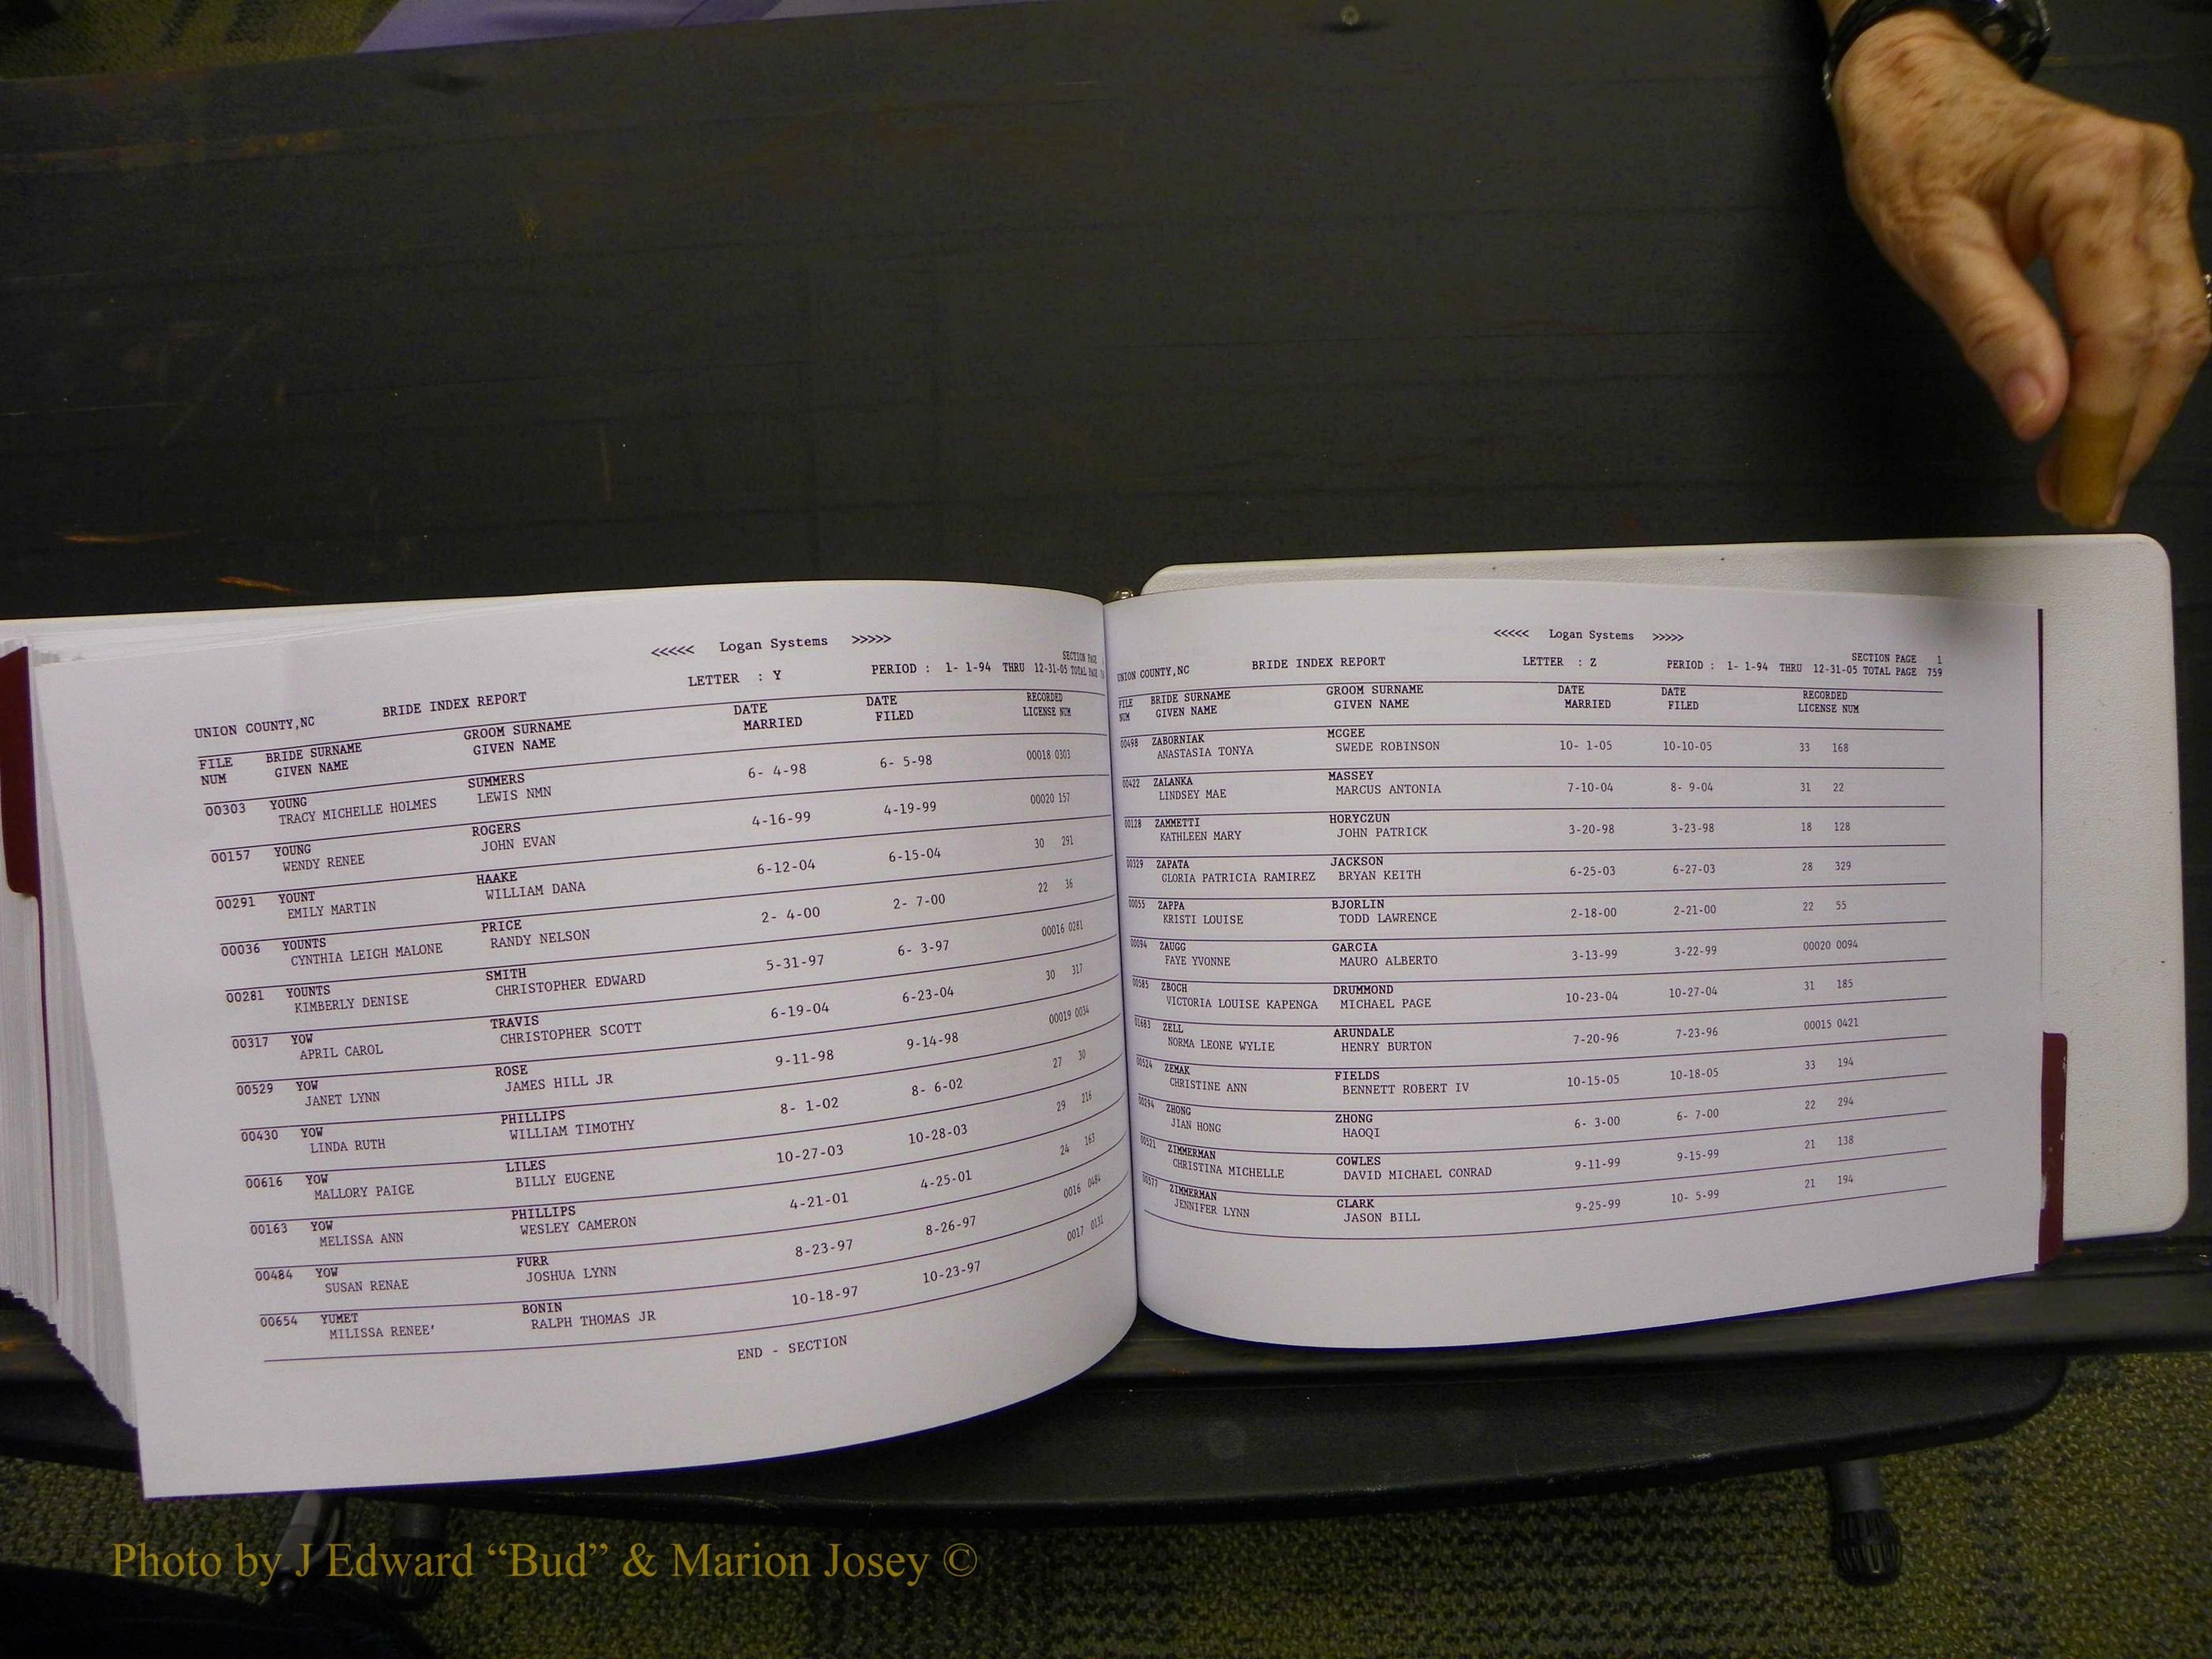 <<<<< Logan Systems >>>>>
SECTION PAGE
UNION COUNTY,NC BRIDE INDEX REPORT LETTER : Y PERIOD : 1- 1-94 THRU 12-31-05 TOTAL PAGE
FILE BRIDE SURNAME GROOM SURNAME DATE DATE RECORDED
NUM GIVEN NAME GIVEN NAME MARRIED FILED LICENSE NUM
00303 YOUNG SUMMERS 6- 4-98 6- 5-98 00018 0303
TRACY MICHELLE HOLMES LEWIS NMN
00157 YOUNG ROGERS 4-16-99 4-19-99 00020 157
WENDY RENEE JOHN EVAN
00291 YOUNT HAAKE 6-12-04 6-15-04 30 291
EMILY MARTIN WILLIAM DANA
00036 YOUNTS PRICE 2- 4-00 2- 7-00 22 36
CYNTHIA LEIGH MALONE RANDY NELSON
00281 YOUNTS SMITH 5-31-97 6- 3-97 00016 0281
KIMBERLY DENISE CHRISTOPHER EDWARD
00317 YOW TRAVIS 6-19-04 6-23-04 30 317
APRIL CAROL CHRISTOPHER SCOTT
00529 YOW ROSE 9-11-98 9-14-98 00019 0034
JANET LYNN JAMES HILL JR
00430 YOW PHILLIPS 8- 1-02 8- 6-02 27 30
LINDA RUTH WILLIAM TIMOTHY
00616 YOW LILES 10-27-03 10-28-03 29 216
MALLORY PAIGE BILLY EUGENE
00163 YOW PHILLIPS 4-21-01 4-25-01 24 163
MELISSA ANN WESLEY CAMERON
00484 YOW FURR 8-23-97 8-26-97 0016 0484
SUSAN RENAE JOSHUA LYNN
00654 YUMET BONIN 10-18-97 10-23-97 0017 0131
MILISSA RENEE' RALPH THOMAS JR
END - SECTION
<<<<< Logan Systems >>>>>
SECTION PAGE 1
UNION COUNTY,NC BRIDE INDEX REPORT LETTER : Z PERIOD : 1- 1-94 THRU 12-31-05 TOTAL PAGE 759
FILE BRIDE SURNAME GROOM SURNAME DATE DATE RECORDED
NUM GIVEN NAME GIVEN NAME MARRIED FILED LICENSE NUM
00498 ZABORNIAK MCGEE 10- 1-05 10-10-05 33 168
ANASTASIA TONYA SWEDE ROBINSON
00422 ZALANKA MASSEY 7-10-04 8- 9-04 31 22
LINDSEY MAE MARCUS ANTONIA
00128 ZAMMETTI HORYCZUN 3-20-98 3-23-98 18 128
KATHLEEN MARY JOHN PATRICK
00329 ZAPATA JACKSON 6-25-03 6-27-03 28 329
GLORIA PATRICIA RAMIREZ BRYAN KEITH
00055 ZAPPA BJORLIN 2-18-00 2-21-00 22 55
KRISTI LOUISE TODD LAWRENCE
00094 ZAUGG GARCIA 3-13-99 3-22-99 00020 0094
FAYE YVONNE MAURO ALBERTO
00585 ZBOCH DRUMMOND 10-23-04 10-27-04 31 185
VICTORIA LOUISE KAPENGA MICHAEL PAGE
01683 ZELL ARUNDALE 7-20-96 7-23-96 00015 0421
NORMA LEONE WYLIE HENRY BURTON
00524 ZEMAK FIELDS 10-15-05 10-18-05 33 194
CHRISTINE ANN BENNETT ROBERT IV
00294 ZHONG ZHONG 6- 3-00 6- 7-00 22 294
JIAN HONG HAOQI
00521 ZIMMERMAN COWLES 9-11-99 9-15-99 21 138
CHRISTINA MICHELLE DAVID MICHAEL CONRAD
00577 ZIMMERMAN CLARK 9-25-99 10- 5-99 21 194
JENNIFER LYNN JASON BILL
Photo by J Edward “Bud” & Marion Josey ©